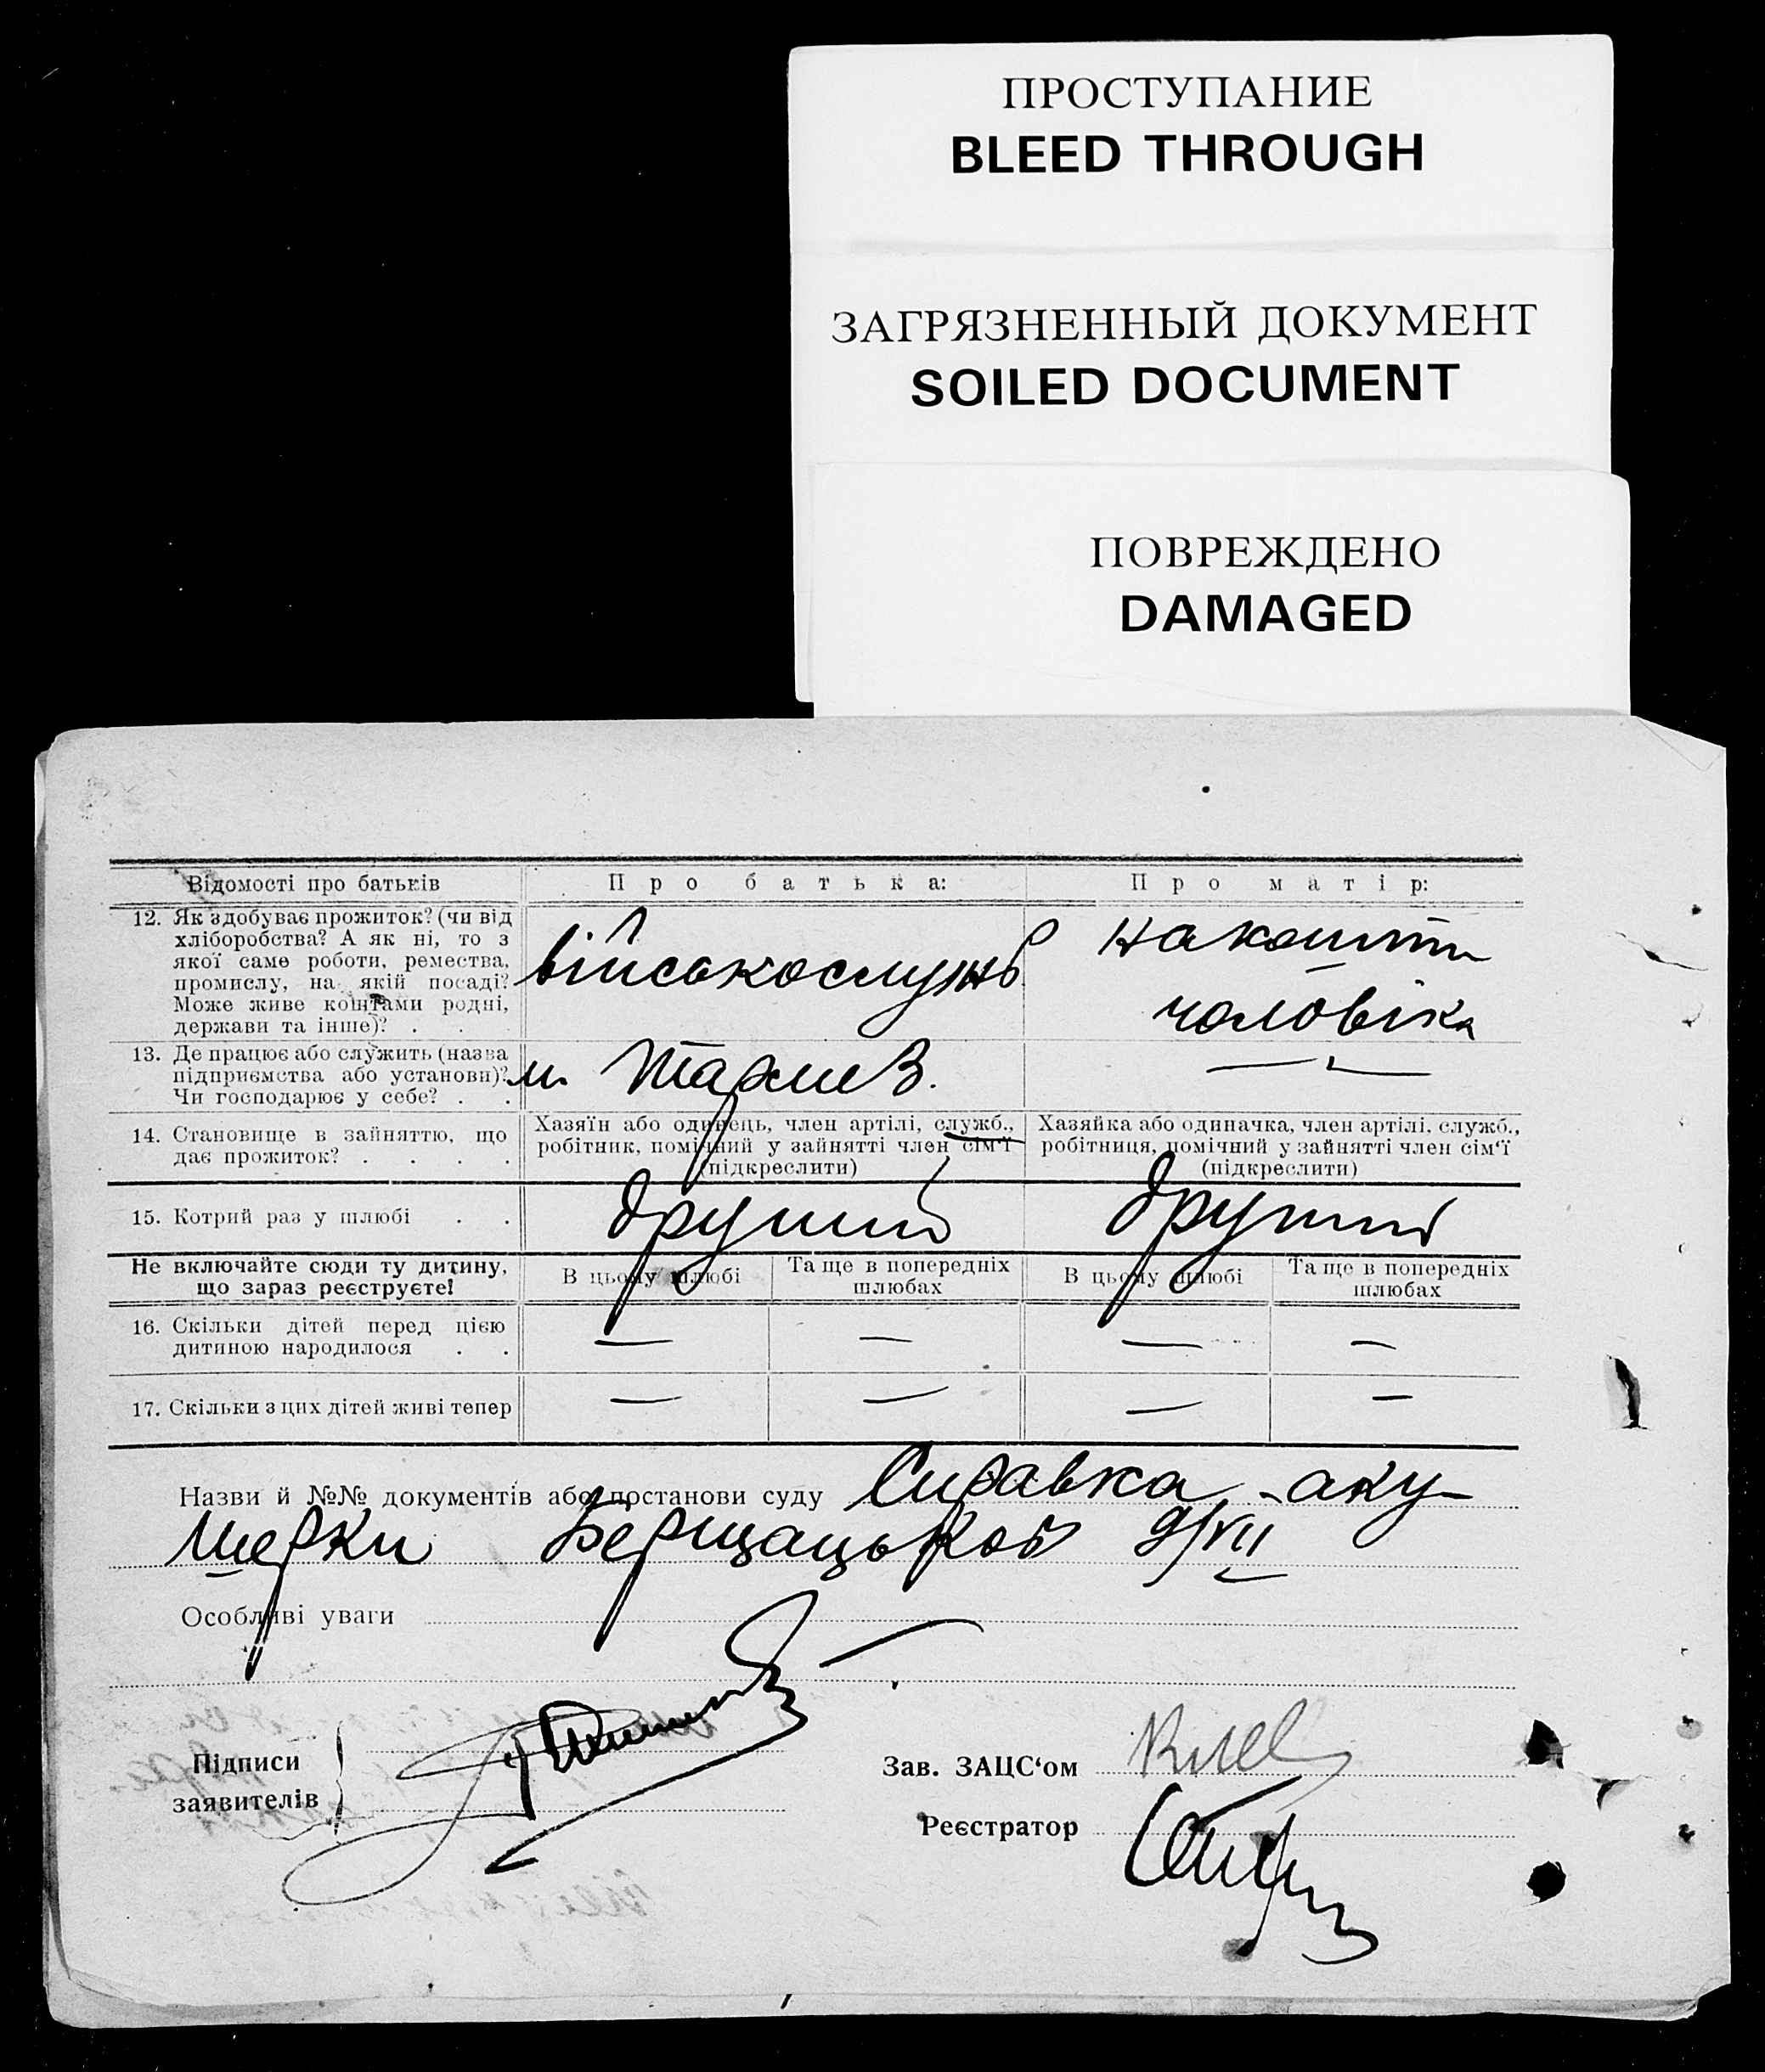 ПРОСТУПАНИЕ
BLEED THROUGH
ЗАГРЯЗНЕННЫЙ ДОКУМЕНТ
SOILED DOCUMENT
ПОВРЕЖДЕНО
DAMAGED
Відомості про батьків
Про батька:
Про матір:
12. Як здобуває прожиток? (чи від
хліборобства? А як ні, то з
якої саме роботи, ремества,
промислу, на якій посаді?
Може живе коштами родні,
держави та інше)? . .
військослужб
на кошти
чоловіка
13. Де працює або служить (назва
підприємства або установи)?
Чи господарює у себе? . .
м.
14. Становище в зайняттю, що
дає прожиток? . . . .
Хазяїн або одинець, член артілі, служб.,
робітник, помічний у зайнятті член сім'ї
(підкреслити)
Хазяйка або одиначка, член артілі, служб.,
робітниця, помічний у зайнятті член сім'ї
(підкреслити)
15. Котрий раз у шлюбі . .
другий
другий
Не включайте сюди ту дитину,
що зараз реєструєте!
В цьому шлюбі
Та ще в попередніх
шлюбах
В цьому шлюбі
Та ще в попередніх
шлюбах
16. Скільки дітей перед цією
дитиною народилося . .
— — — —
17. Скільки з цих дітей живі тепер
— — — —
Назви й №№ документів або постанови суду Справка аку-
шерки 9/VII
Особливі уваги
Підписи
заявителів
Зав. ЗАЦС‘ом
Реєстратор